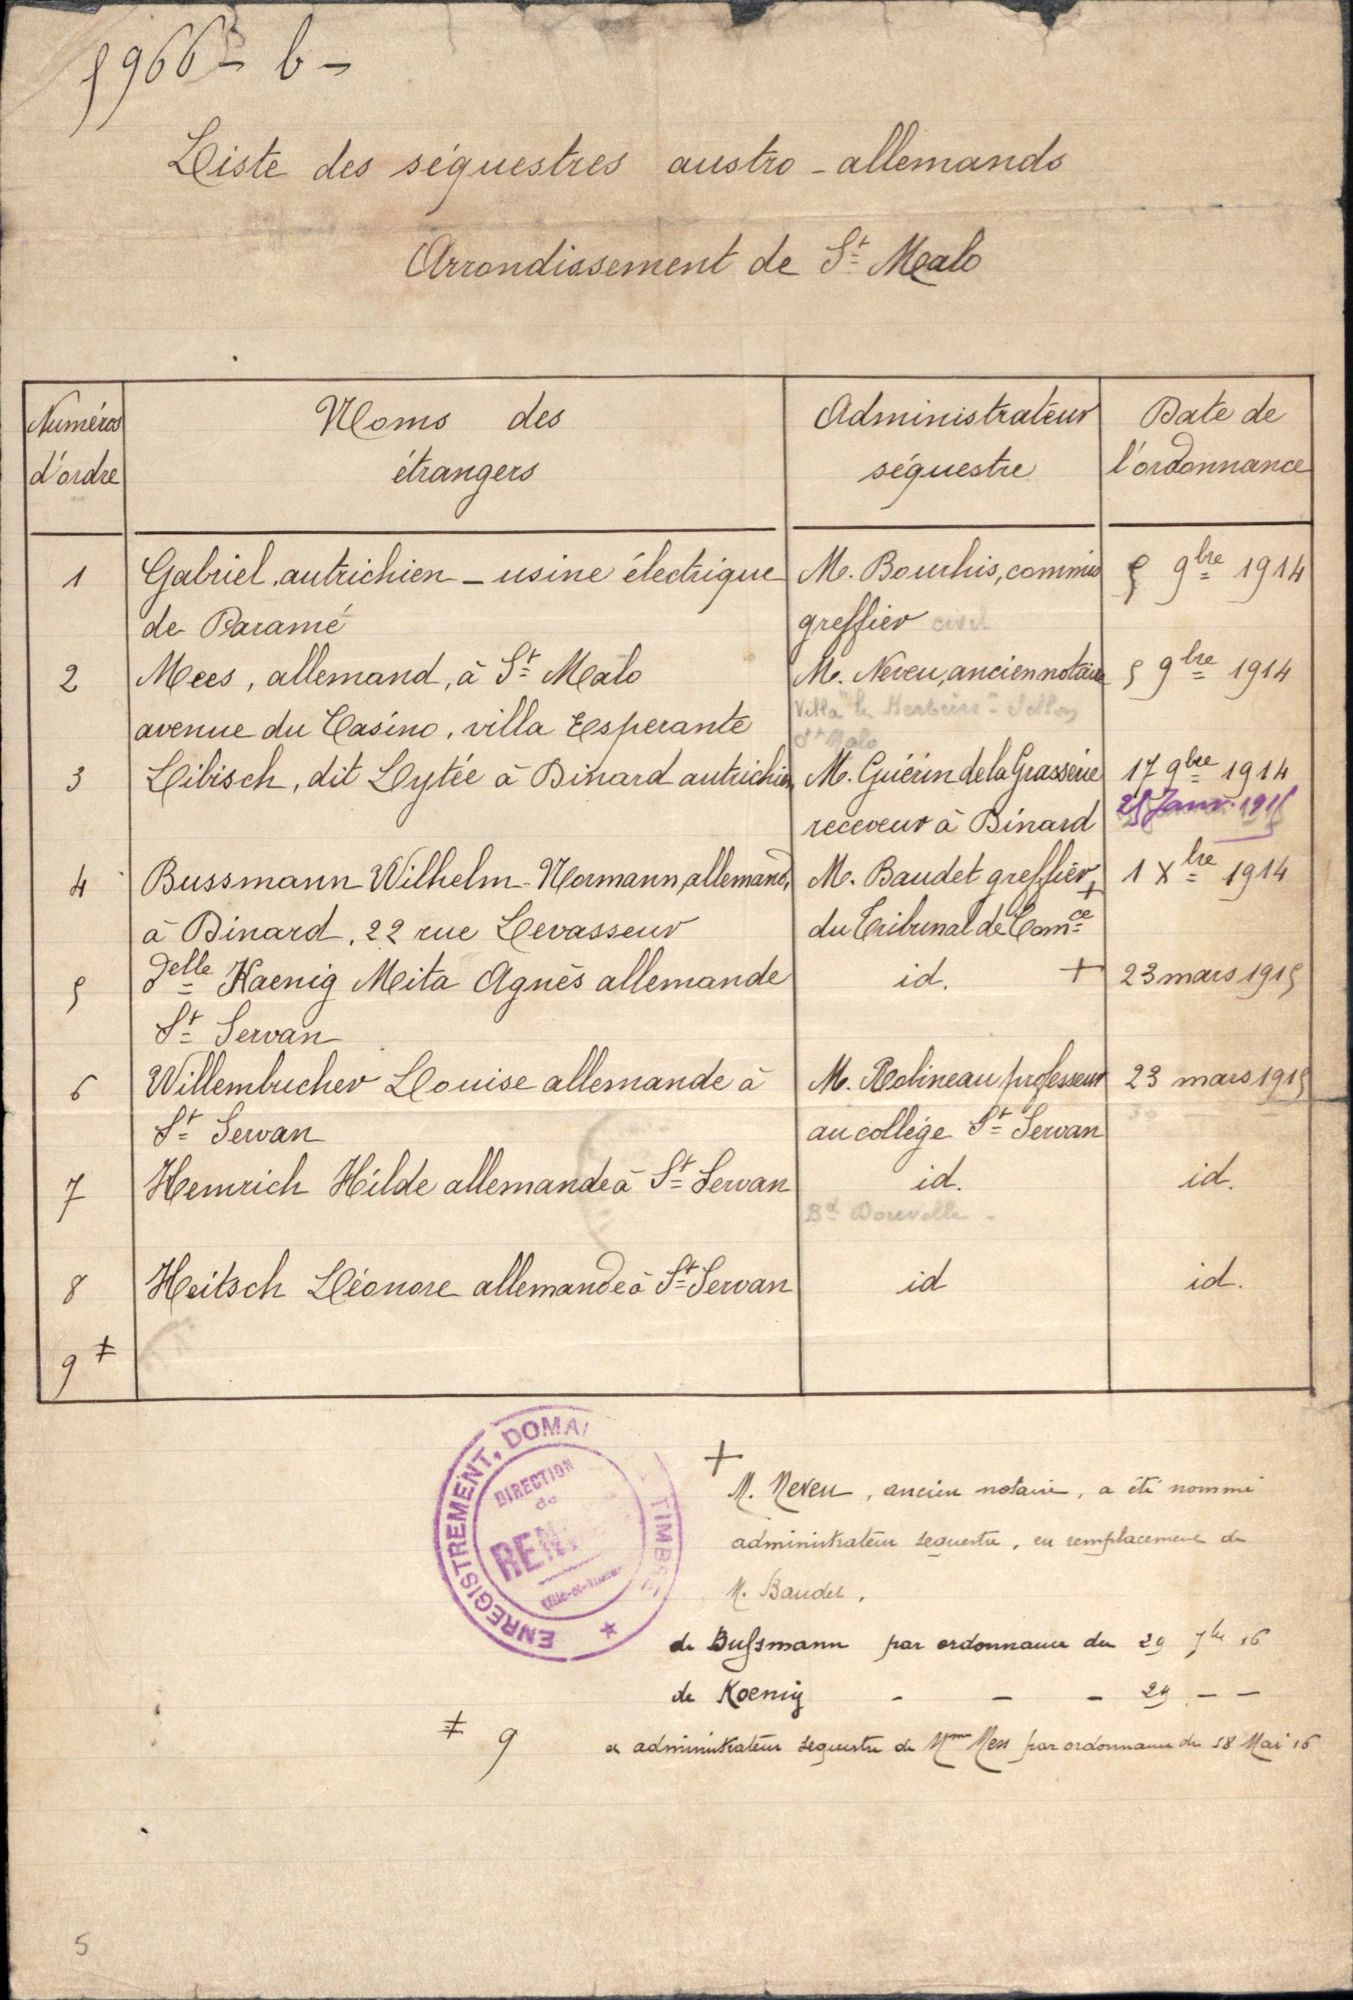 5966 - b -
Liste des séquestres austro-allemands
Arrondissement de St Malo
Numéros d'ordre
Noms des étrangers
Administrateur séquestre
Date de l'ordonnance
1 Gabriel, autrichien - usine électrique M. Bourhis, commis 5 9bre 1914
de Paramé greffier civil
2 Mees, allemand, à St Malo M. Neveu, ancien notaire 5 9bre 1914
avenue du Casino, villa Esperante Villa
St Malo
3 Libisch, dit Lytée à Dinard autrichien M. Guérin de la Grasserie 17 9bre 1914
receveur à Dinard 25 Janv. 1915
4 Bussmann Wilhelm-Hormann, allemand, M. Baudet greffier + 1 Xbre 1914
à Dinard, 22 rue Levasseur du Tribunal de Comce
5 Delle Kaenig Meita Agnès allemande id. + 23 mars 1915
St Servan
6 Willembucher Louise allemande à M. Robineau professeur 23 mars 1915
St Servan au collège St Servan
7 Hemrich Hilde allemande à St Servan id. id.
Bd
8 Heitsch Léonore allemande à St Servan id id.
9 ‡
ENREGISTREMENT, DOMAI TIMBRE
DIRECTION
de
REN
+
M. Neveu, ancien notaire, a été nommé
administrateur séquestre, en remplacement de
M. Baudet.
de Bussmann par ordonnance du 29 7bre 16
de Koenig - - - 29 - -
‡ 9 et administrateur séquestre de Mme Mess par ordonnance du 18 Mai 16
5